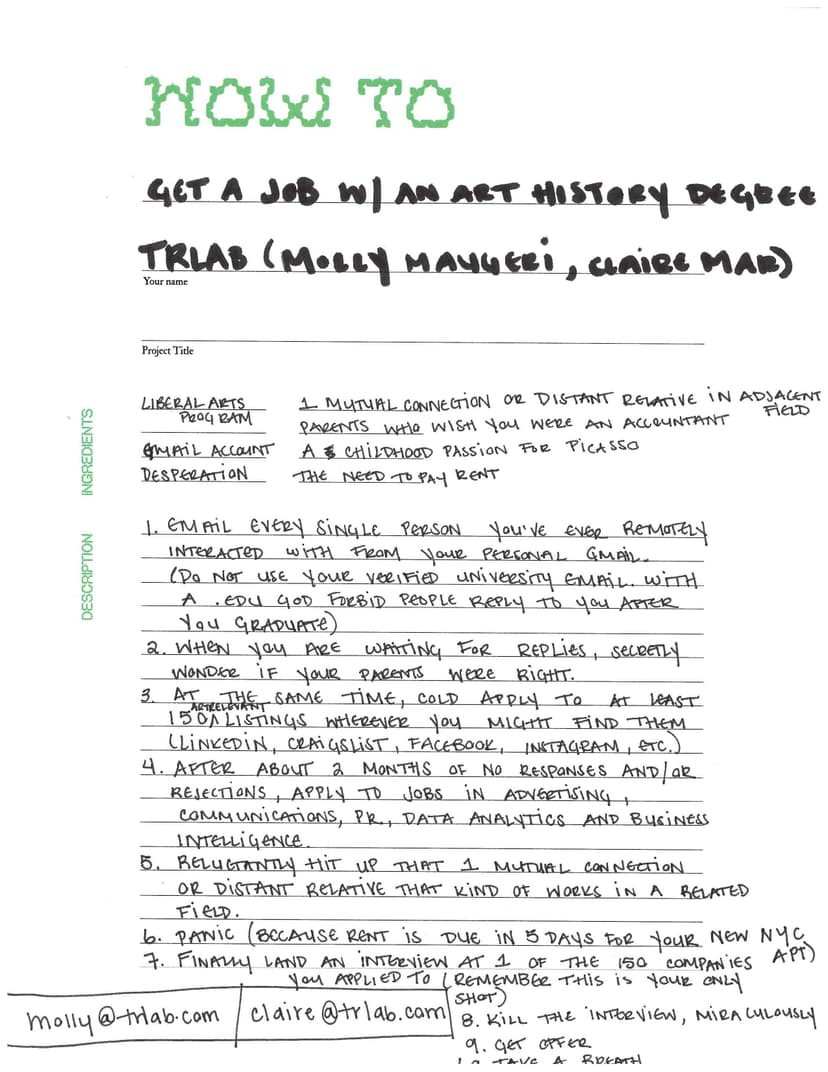 HOW TO
GET A JOB W/ AN ART HISTORY DEGREE
TRLAB (MOLLY MAUGERI, CLAIRE MAR)
Your name
Project Title
INGREDIENTS
LIBERAL ARTS PROGRAM
EMAIL ACCOUNT
DESPERATION
1 MUTUAL CONNECTION OR DISTANT RELATIVE IN ADJACENT FIELD
PARENTS WHO WISH YOU WERE AN ACCOUNTANT
A CHILDHOOD PASSION FOR PICASSO
THE NEED TO PAY RENT
DESCRIPTION
1. EMAIL EVERY SINGLE PERSON YOU'VE EVER REMOTELY
INTERACTED WITH FROM YOUR PERSONAL GMAIL.
(DO NOT USE YOUR VERIFIED UNIVERSITY EMAIL. WITH
A .EDU GOD FORBID PEOPLE REPLY TO YOU AFTER
YOU GRADUATE)
2. WHEN YOU ARE WAITING FOR REPLIES, SECRETLY
WONDER IF YOUR PARENTS WERE RIGHT.
3. AT THE SAME TIME, COLD APPLY TO AT LEAST
150 ART RELEVANT LISTINGS WHEREVER YOU MIGHT FIND THEM
(LINKEDIN, CRAIGSLIST, FACEBOOK, INSTAGRAM, ETC.)
4. AFTER ABOUT 2 MONTHS OF NO RESPONSES AND/OR
REJECTIONS, APPLY TO JOBS IN ADVERTISING,
COMMUNICATIONS, PR, DATA ANALYTICS AND BUSINESS
INTELLIGENCE.
5. RELUCTANTLY HIT UP THAT 1 MUTUAL CONNECTION
OR DISTANT RELATIVE THAT KIND OF WORKS IN A RELATED
FIELD.
6. PANIC (BECAUSE RENT IS DUE IN 5 DAYS FOR YOUR NEW NYC APT)
7. FINALLY LAND AN INTERVIEW AT 1 OF THE 150 COMPANIES
YOU APPLIED TO (REMEMBER THIS IS YOUR ONLY
SHOT)
8. KILL THE INTERVIEW, MIRACULOUSLY
9. GET OFFER
10. TAKE A BREATH
molly@trlab.com
claire@trlab.com